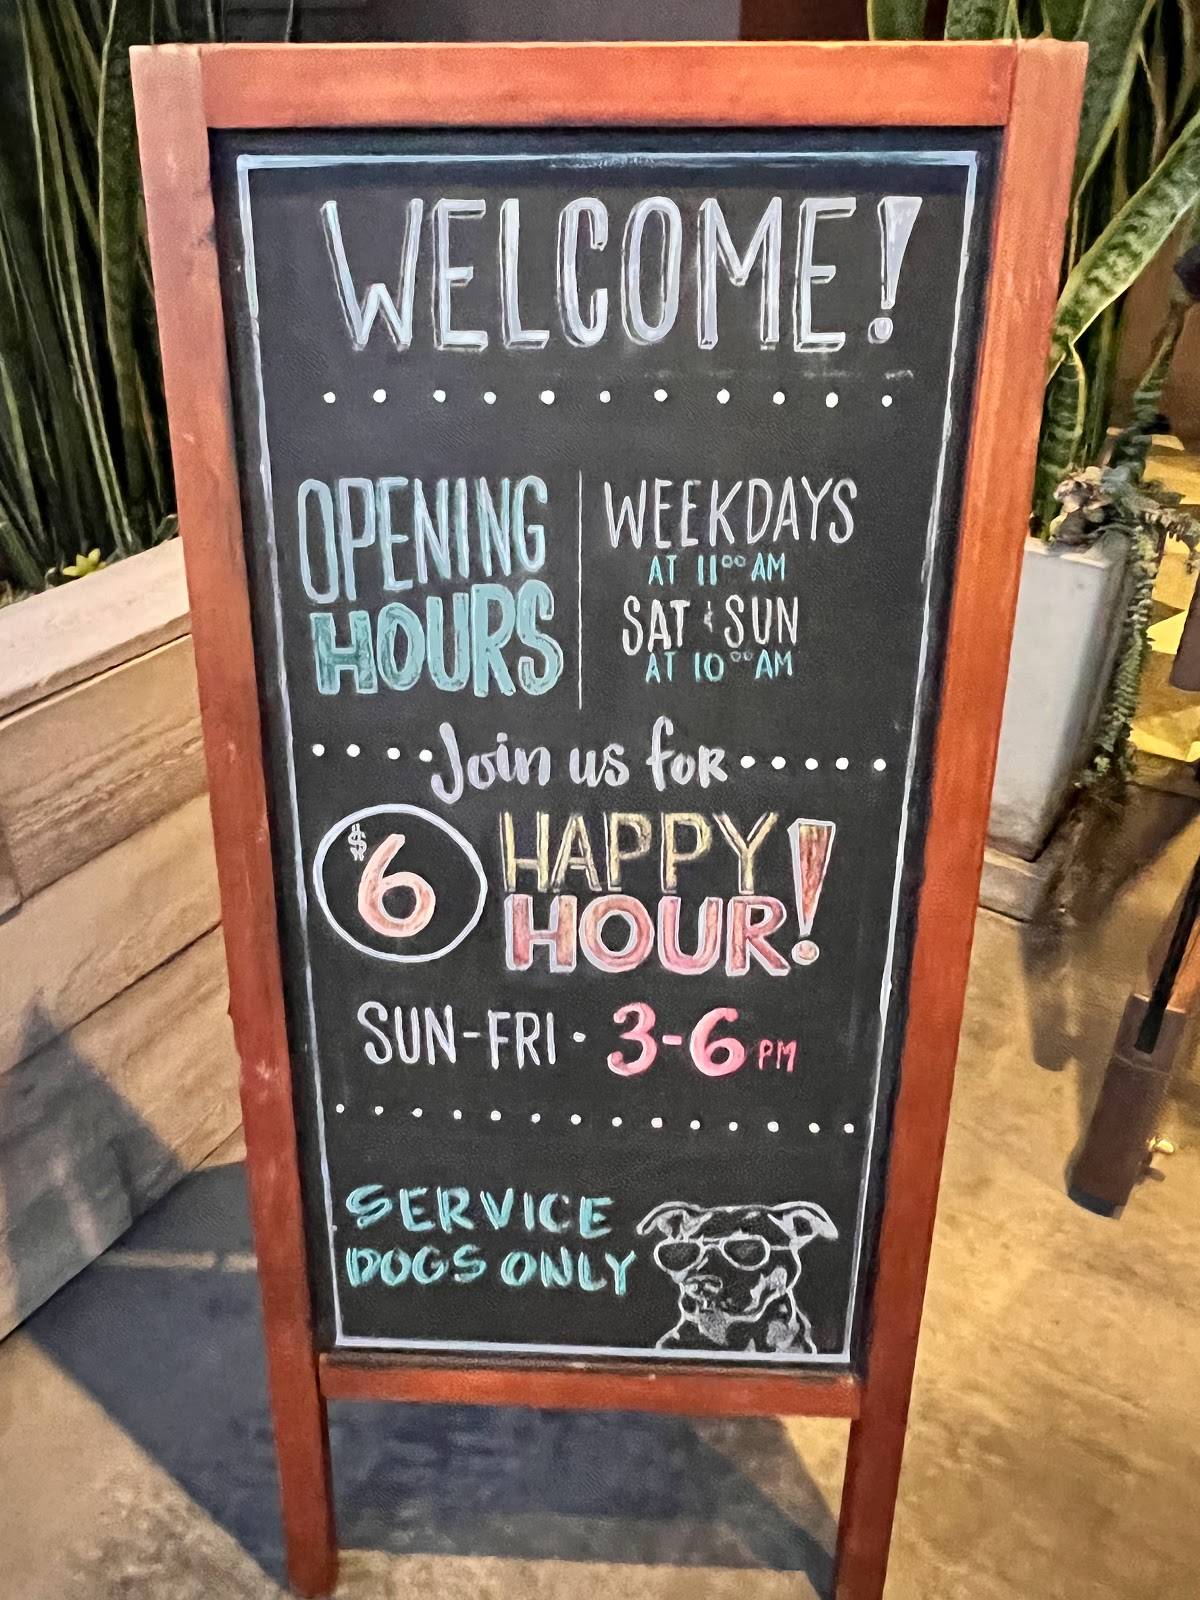 WELCOME!
OPENING
HOURS
WEEKDAYS
AT 11⁰⁰ AM
SAT & SUN
AT 10⁰⁰ AM
Join us for
$6
HAPPY
HOUR!
SUN-FRI · 3-6 PM
SERVICE
DOGS ONLY